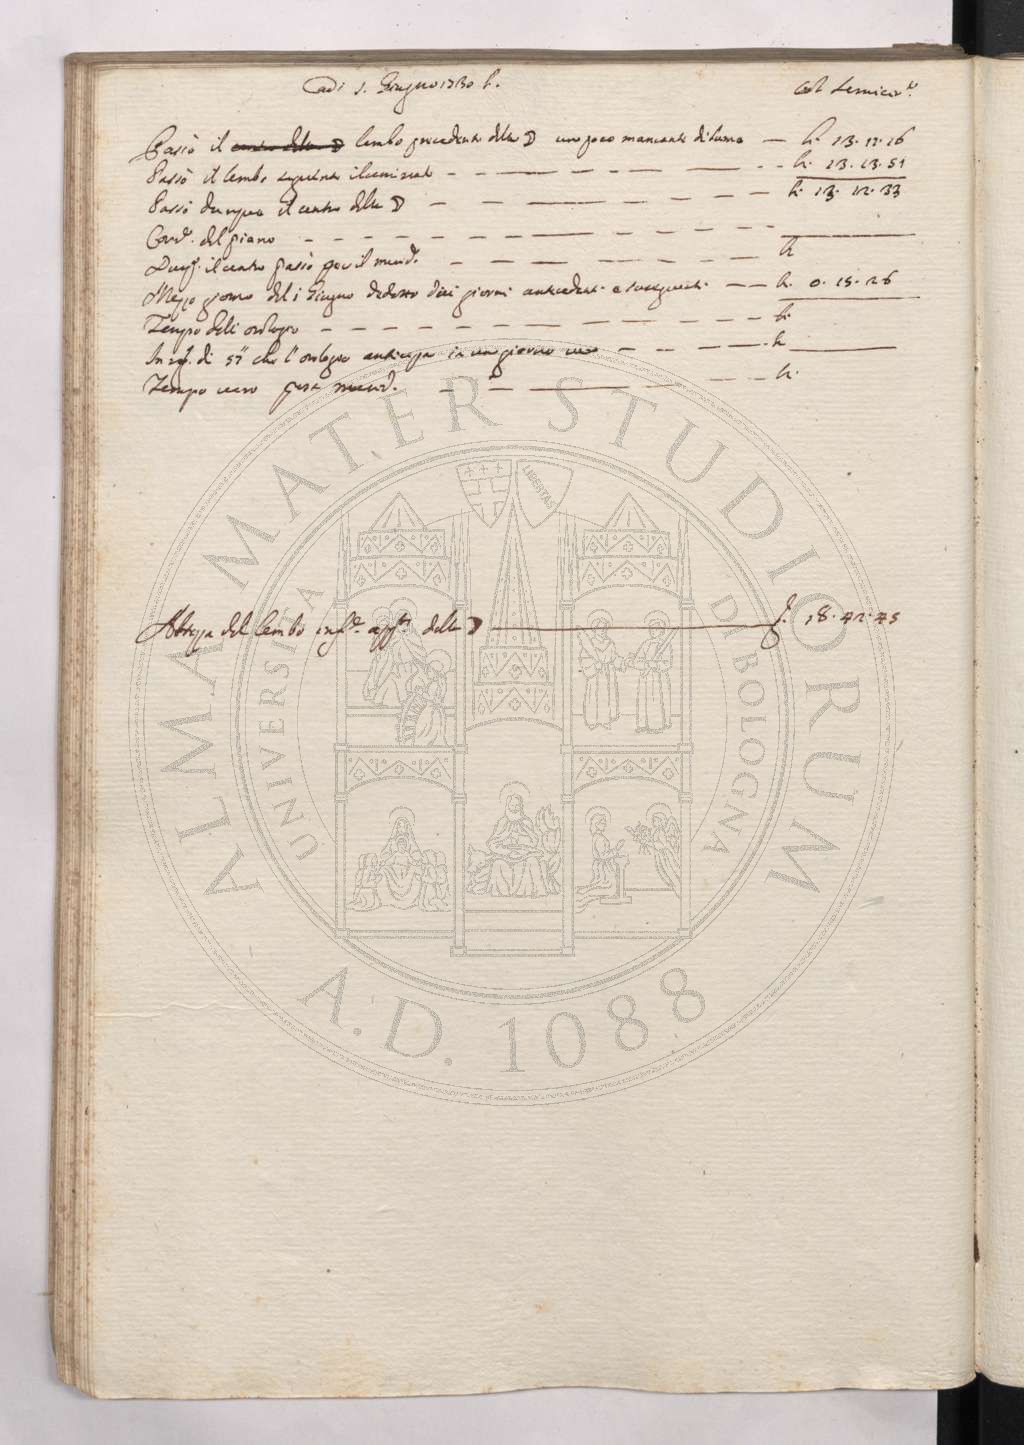 Adi 1. Giugno 1730 h.
Col Semicir.º
Passò il centro della ☽ lembo precedente della ☽ un poco mancante di lume — h. 13. 12. 16
Passò il lembo seguente illuminato — h. 13. 13. 51
h. 13. 12. 33
Passò dunque il centro della ☽
del piano
il centro passò per il merid. — h.
Mezzo giorno del 1 Giugno dedotto dai giorni antecedenti e susseguenti — h. 0. 15. 26
Tempo dell orologio — h.
di 57" che l'orologio anticipa in un giorno — h.
Tempo vero merid. — h.
Altezza del lembo inf.e app.te della ☽ — g. 18. 42. 45
ALMA MATER STUDIORUM
UNIVERSITÀ DI BOLOGNA
LIBERTAS
A.D. 1088